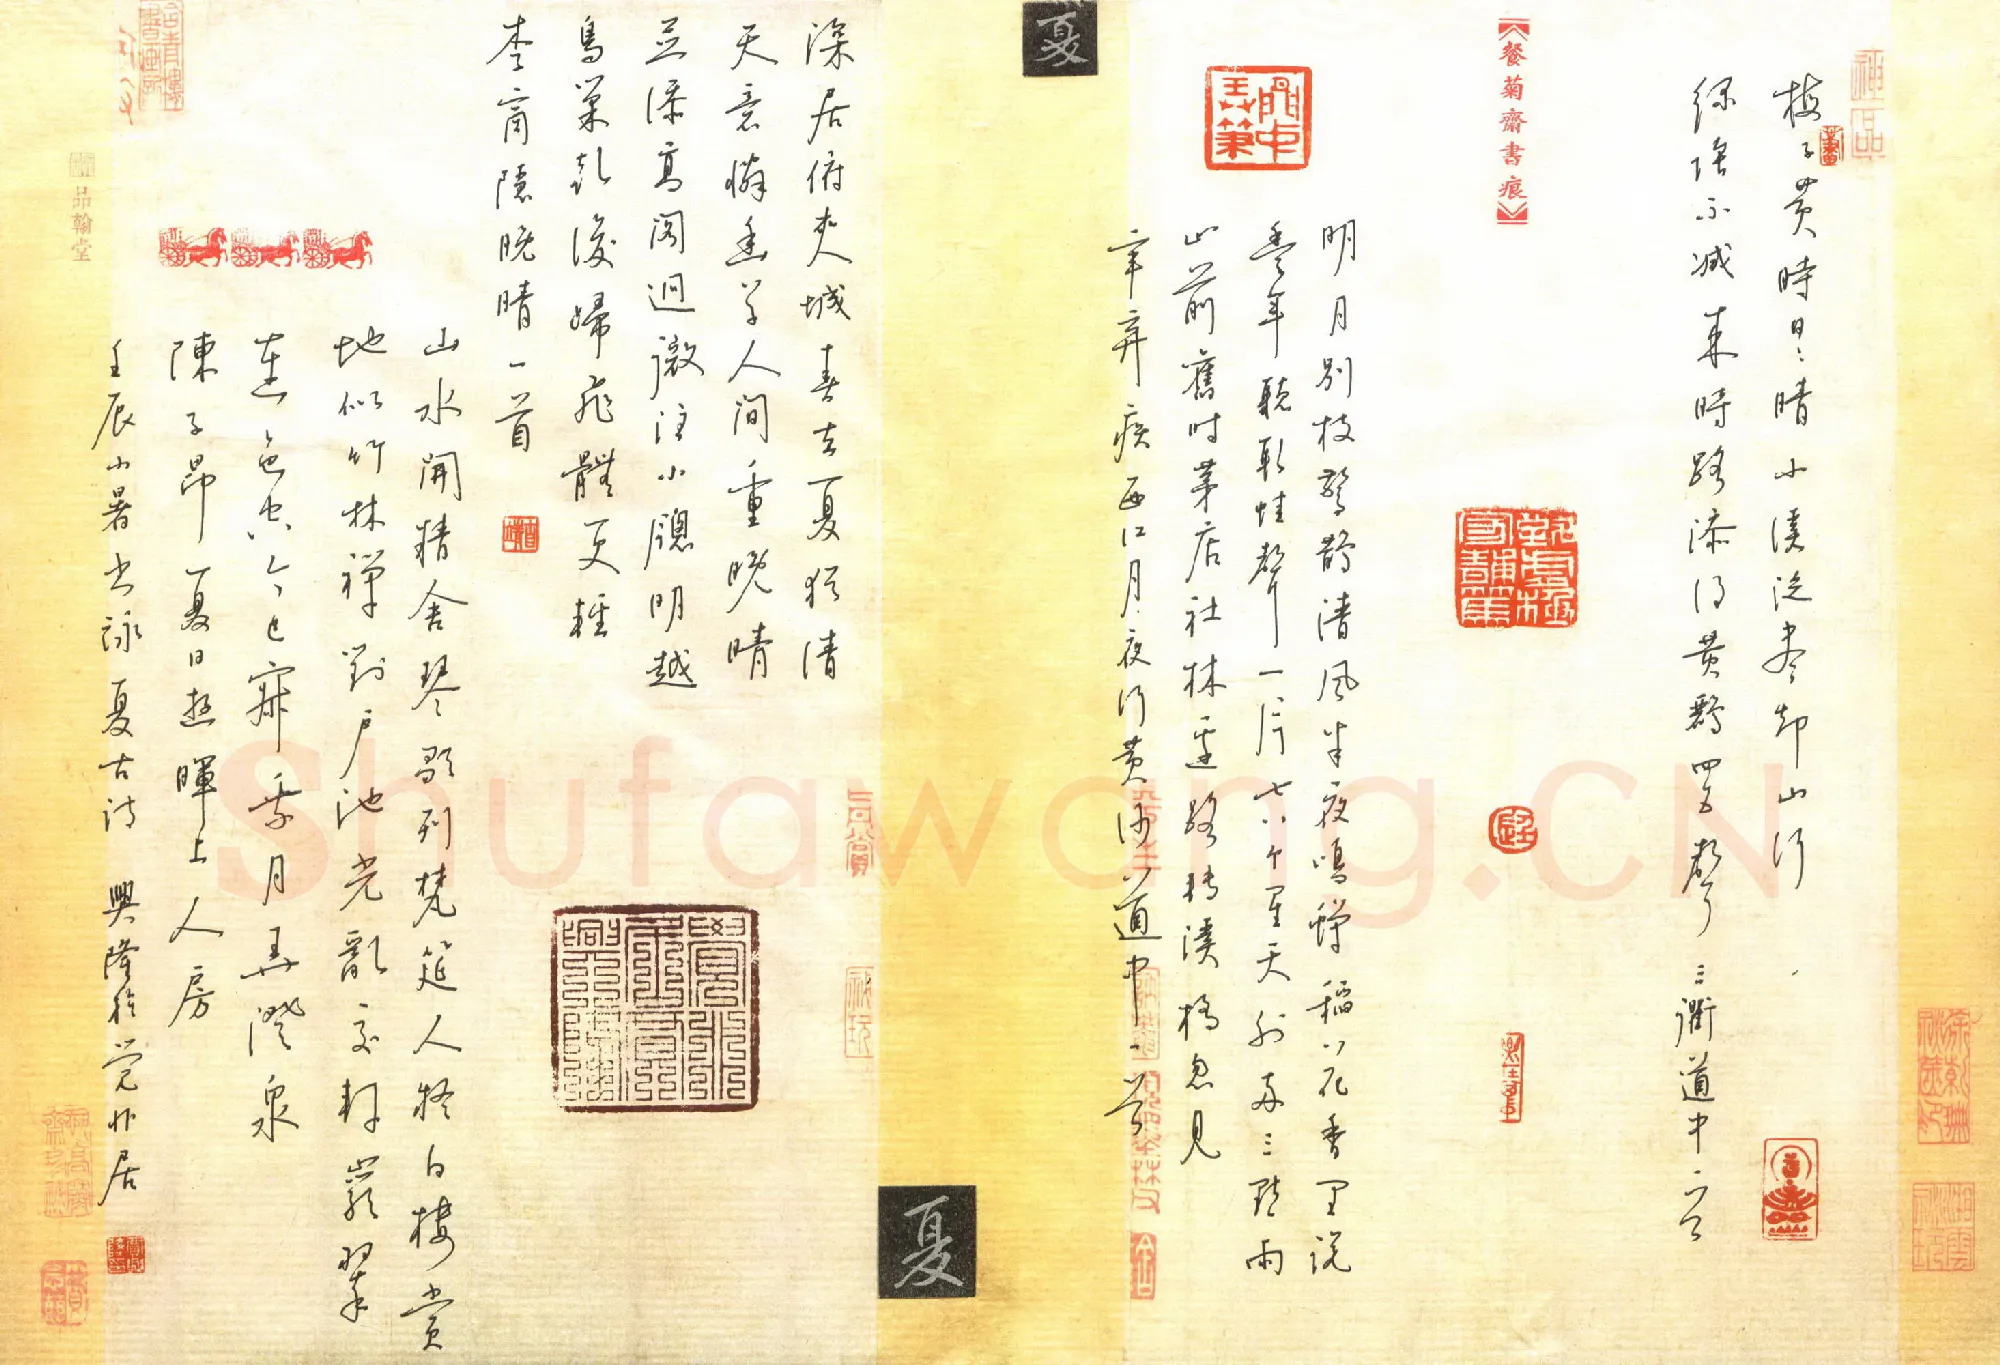 梅子黄時日々晴小溪泛盡却山行
绿陰不减来時路添得黄鸝四五聲 三衢道中一首
餐菊齋書痕
明月别枝驚鵲清風半夜鳴蟬稻花香里説
豊年聽取蛙聲一片七八个星天外两三點雨
山前舊时茅店社林邊路轉溪橋忽見
辛弃疾西江月夜行黄沙道中一首
夏
夏
深居俯夹城春去夏犹清
天意憐幽草人間重晚晴
並添高阁迥微注小牕明越
鳥巢乾後歸飛體更輕
李商隱晚晴一首
山水開精舍琴歌列梵筵人疑白楼赏
地似竹林禅對户池光亂交軒巖翠
連色空今已寂乘月弄澄泉
陳子昂夏日遊暉上人房
壬辰小暑书詠夏古诗 興隆於觉非居
昂翰堂
Shufawang.CN